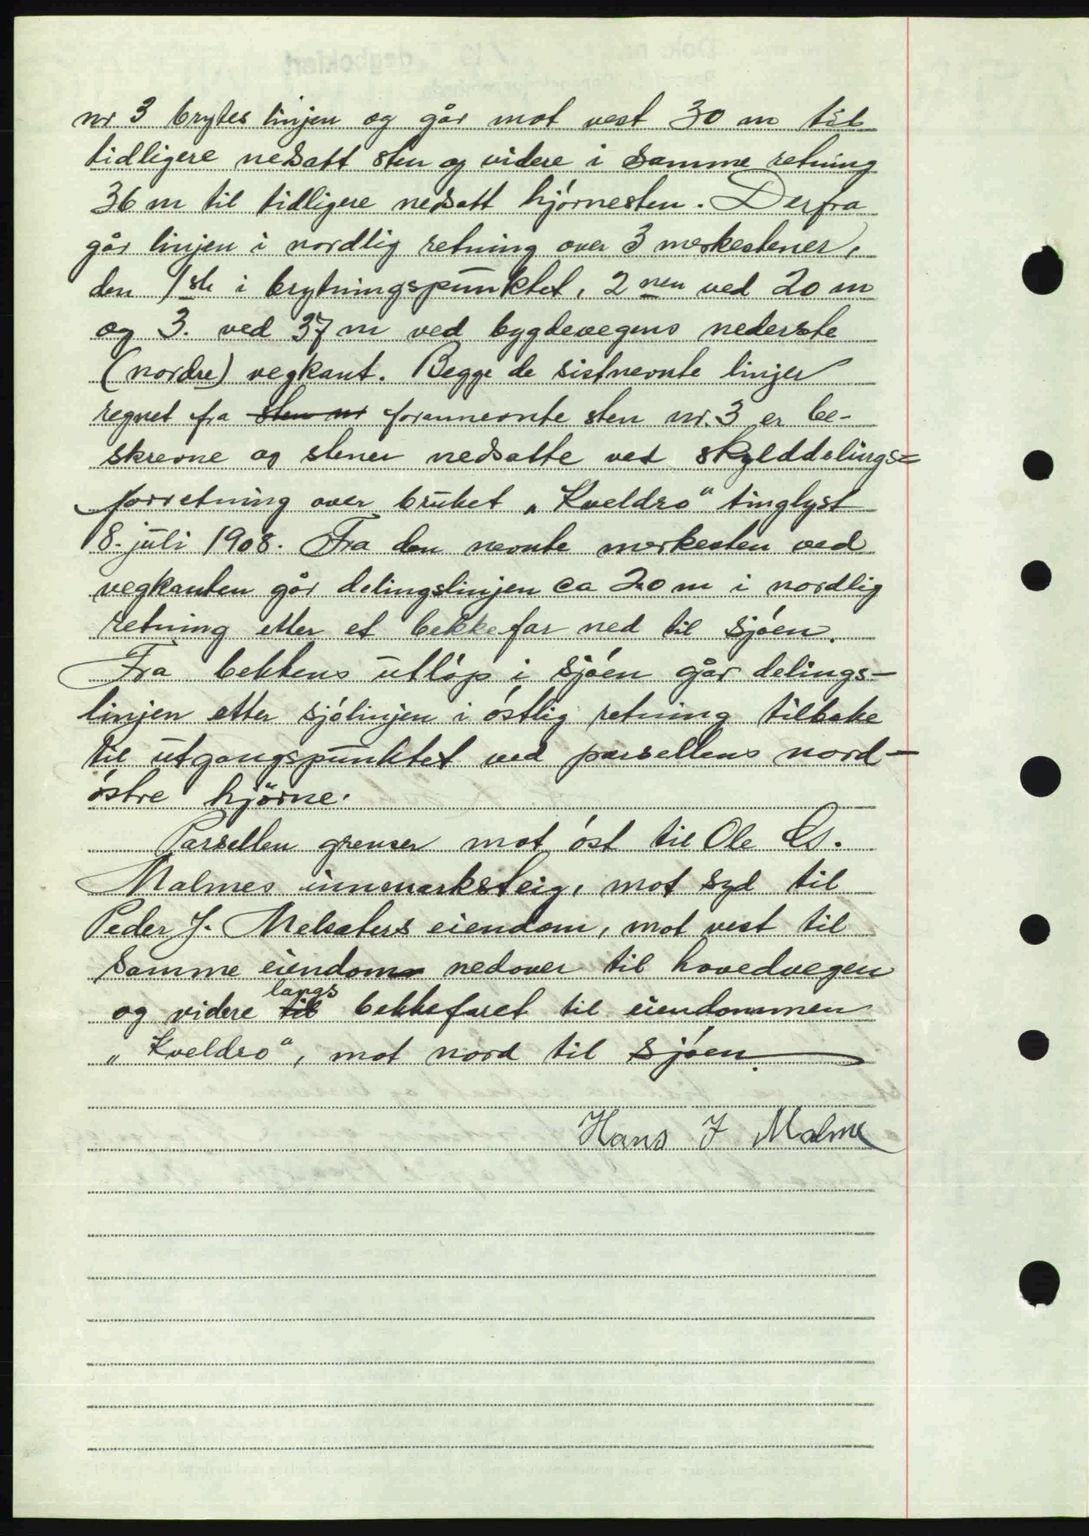 nr 3 brytes linjen og går mot vest 30 m til
tidligere nedsatt sten og videre i samme retning
36 m til tidligere nedsatt hjørnesten. Derfra
går linjen i nordlig retning over 3 merkestener,
den 1ste i brytningspunktet, 2nen ved 20 m
og 3. ved 37 m ved bygdevegens nederste
(nordre) vegkant. Begge de sistnevnte linjer
regnet fra sten nr forannevnte sten nr. 3 er be-
skrevne og stener nedsatte ved skylddelings=
forretning over bruket „Kveldro" tinglyst
8. juli 1908. Fra den nevnte merkesten ved
vegkanten går delingslinjen ca 20 m i nordlig
retning etter et bekkefar ned til sjøen.
Fra bekkens utløp i sjøen går delings-
linjen etter sjølinjen i østlig retning tilbake
til utgangspunktet ved parsellens nord-
østre hjørne.
Parsellen grenser mot øst til Ole
Malmes innmarksteig, mot syd til
Peder J. Melsæters eiendom, mot vest til
samme eiendom nedover til hovedvegen
og videre til langs bekkefaret til eiendommen
„Kveldro", mot nord til sjøen.
Hans J Malme